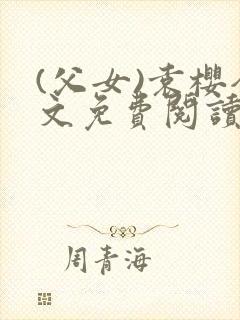 (父女)袁樱
文免費閱讀
周青海